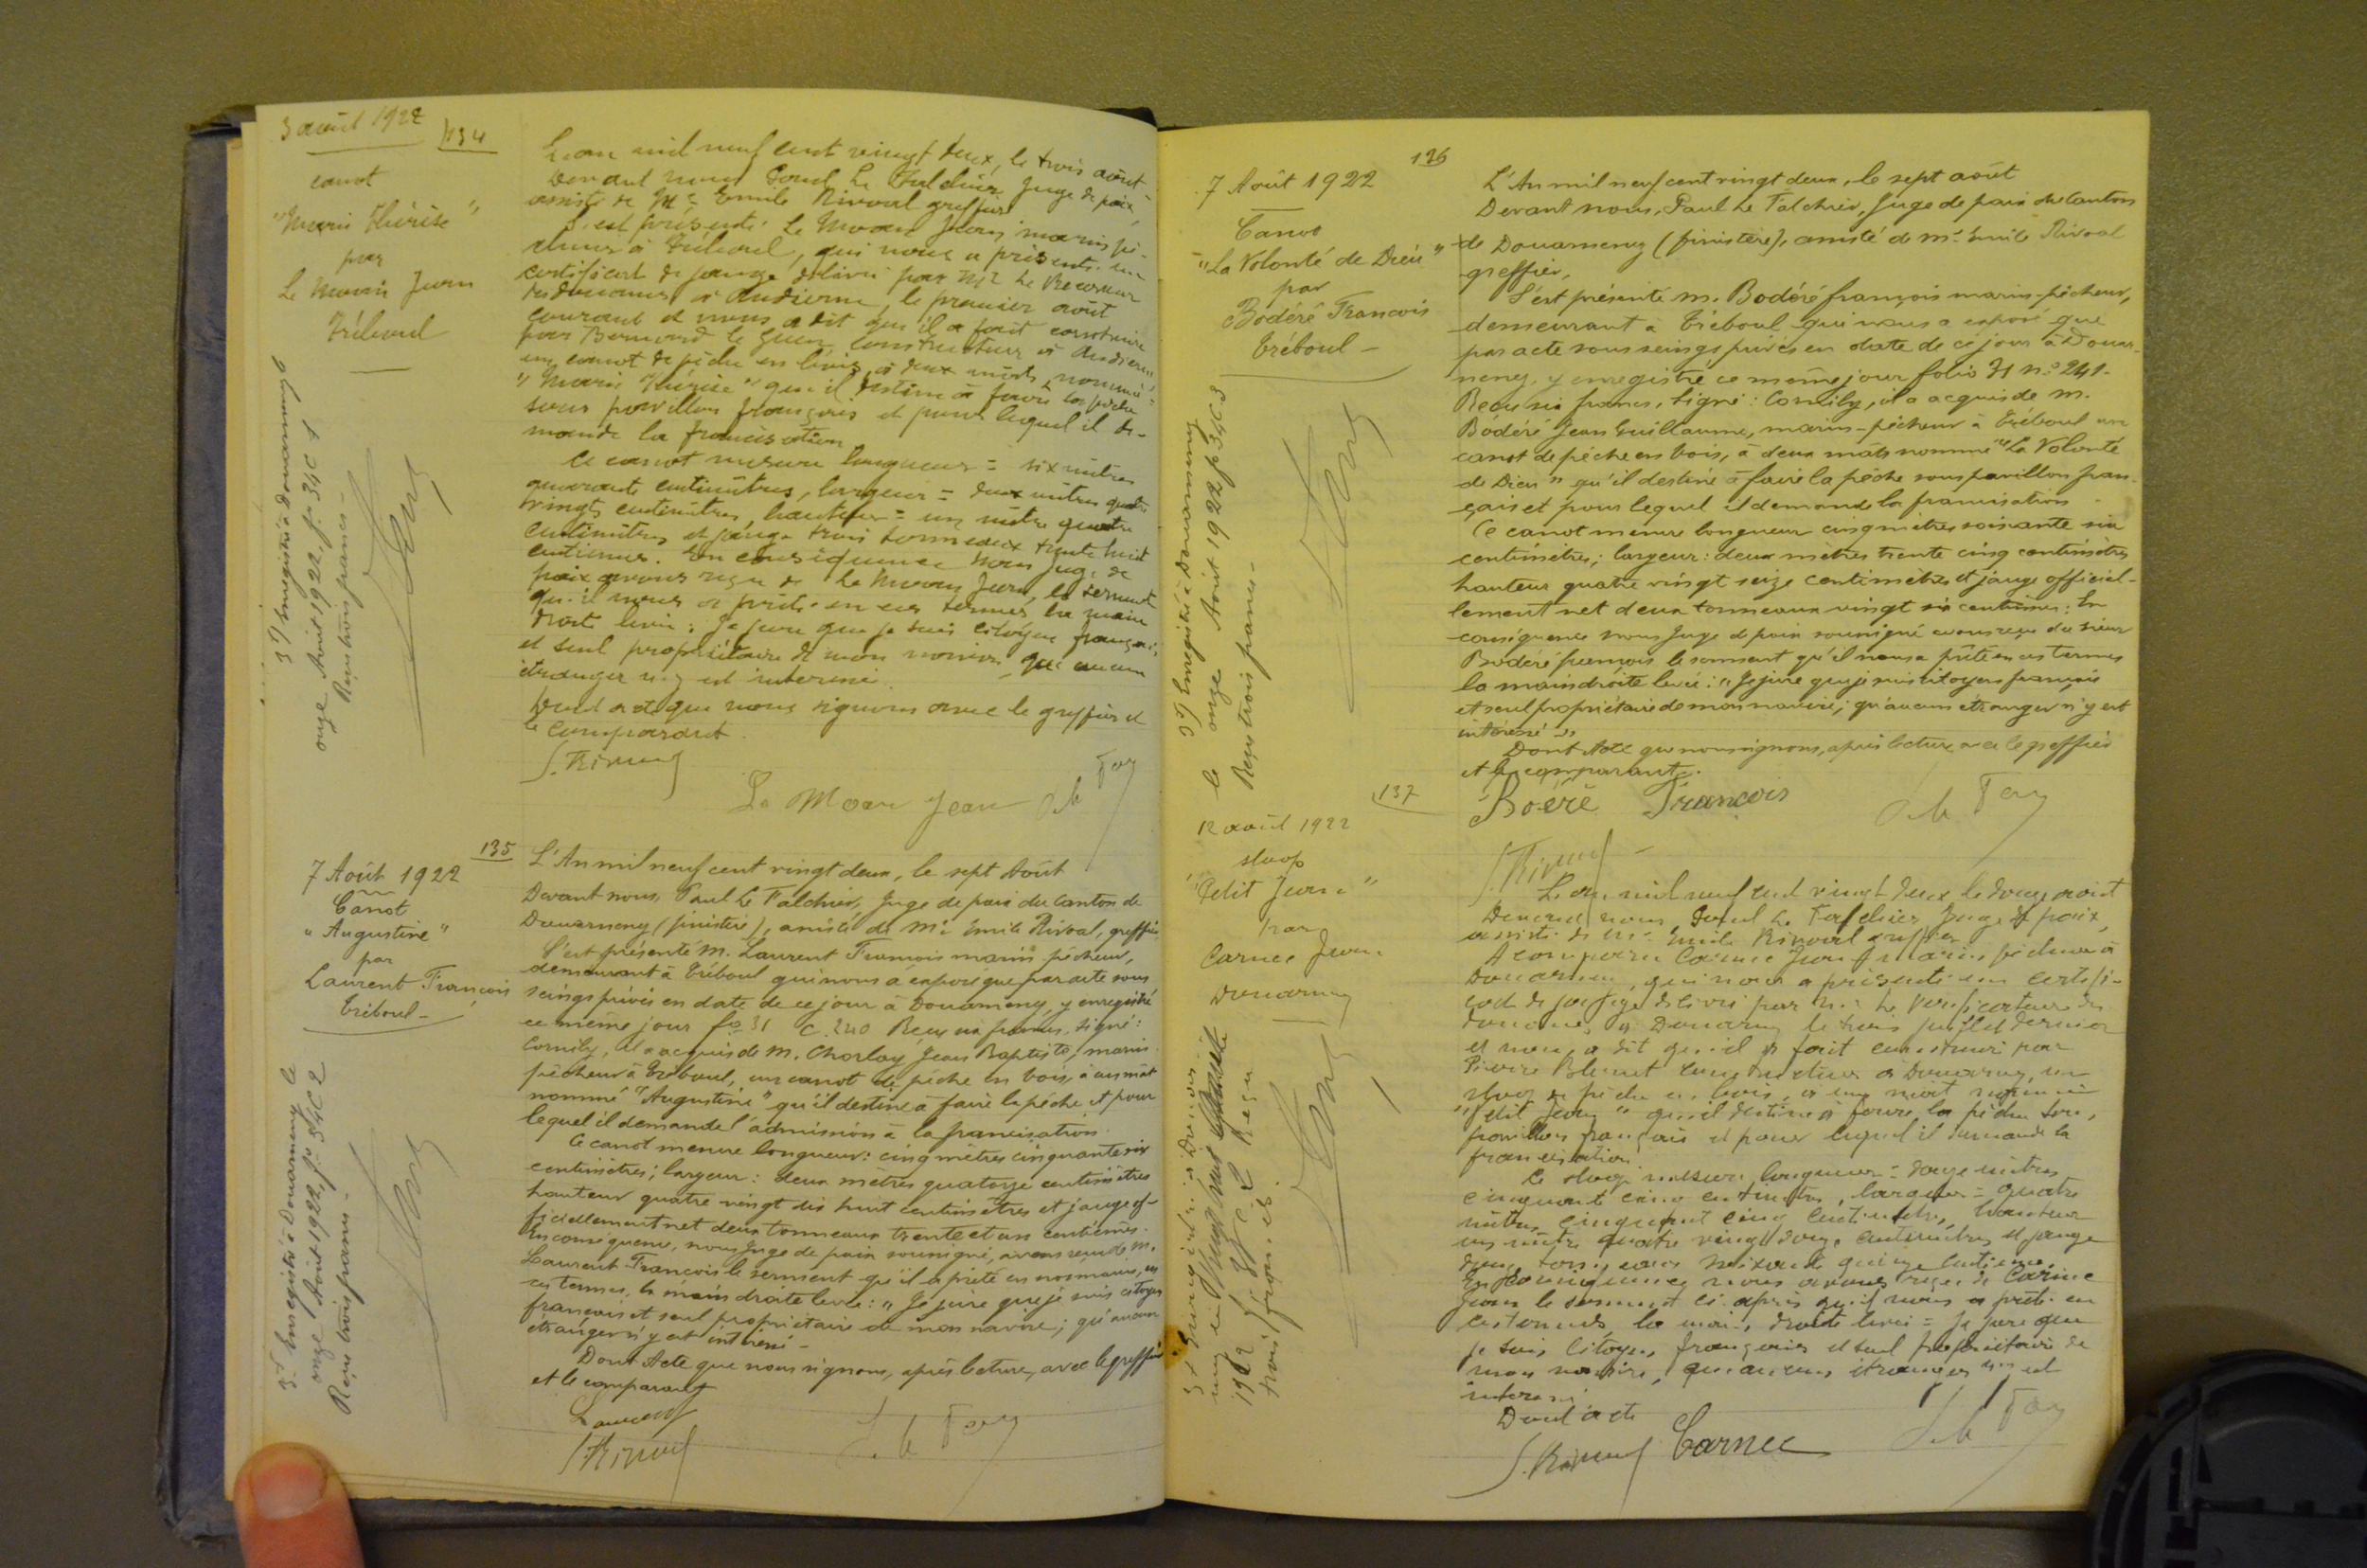 3 août 1922
134
canot
"Marie Thérèse"
par
Le Moan Jean
Tréboul
3°/ Enregistré à Douarnenez
onze Août 1922, f° 34 C 1
Reçu trois francs -
L'an mil neuf cent vingt deux, le trois août
Devant nous Paul Le Falchier Juge de paix,
assisté de Me Emile Rivoal greffier
S'est présenté Le Moan Jean marin pê-
cheur à Tréboul, qui nous a présenté un
certificat de jauge délivré par Mr Le Receveur
des douanes à Audierne, le premier août
courant et nous a dit qu'il a fait construire
par Bernard Le Guen constructeur à Audierne,
un canot de pêche en bois, à deux mâts, nommé:
"Marie Thérèse" qu'il destine à faire la pêche
sous pavillon français et pour lequel il de-
mande la francisation
Ce canot mesure longueur = six mètres
quarante centimètres, largeur = deux mètres quatre
vingts centimètres, hauteur = un mètre quatre
centimètres et jauge trois tonneaux trente huit
centièmes. En conséquence Nous Juge de
paix avons reçu de Le Moan Jean, le serment
qu'il nous a prêté en ces termes la main
droite levée: Je jure que je suis citoyen français,
et seul propriétaire de mon navire, qu'aucun
étranger n'y est intéressé.
Dont acte que nous signons avec le greffier et
le comparant.
Le Moan Jean
135
7 Août 1922
Canot
"Augustine"
par
Laurent François
Tréboul -
3°/ Enregistré à Douarnenez le
onze Août 1922, f° 34 C 2
Reçu trois francs -
L'An mil neuf cent vingt deux, le sept Août
Devant nous, Paul Le Falchier, Juge de paix du Canton de
Douarnenez (finistère), assisté de Me Emile Rivoal, greffier.
S'est présenté M. Laurent François marin pêcheur,
demeurant à Tréboul qui nous a exposé que par acte sous
seings privés en date de ce jour à Douarnenez, y enregistré
ce même jour f° 31 C. 240 Reçu six francs, signé:
Cornily, il a acquis de M. Charlay Jean Baptiste, marin
pêcheur à Tréboul, un canot de pêche en bois, à un mât
nommé "Augustine" qu'il destine à faire la pêche et pour
lequel il demande l'admission à la francisation.
Ce canot mesure longueur: cinq mètres cinquante six
centimètres; largeur: deux mètres quatorze centimètres
hauteur quatre vingt dix huit centimètres et jauge of-
ficiellement net deux tonneaux trente et un centièmes.
En conséquence, nous Juge de paix soussigné, avons reçu de M.
Laurent François le serment qu'il a prêté en nos mains, en
ces termes, la main droite levée: "Je jure que je suis citoyen
français et seul propriétaire de mon navire; qu'aucun
étranger n'y est intéressé -
Dont Acte que nous signons, après lecture, avec le greffier
et le comparant
Laurent
136
7 Août 1922
Canot
"La Volonté de Dieu"
par
Bodéré François
Tréboul -
3°/ Enregistré à Douarnenez
le onze Août 1922 f° 34 C 3
Reçu trois francs -
L'An mil neuf cent vingt deux, le sept août
Devant nous, Paul Le Falchier, Juge de paix du Canton
de Douarnenez (finistère), assisté de Me Emile Rivoal
greffier,
S'est présenté M. Bodéré françois marin-pêcheur,
demeurant à Tréboul qui nous a exposé que
par acte sous seings privés en date de ce jour à Douar-
nenez, y enregistré ce même jour folio 31 n° 241-
Reçu six francs, signé: Cornily, il a acquis de M.
Bodéré Jean Guillaume, marin-pêcheur à Tréboul un
canot de pêche en bois, à deux mâts nommé "La Volonté
de Dieu" qu'il destine à faire la pêche sous pavillon fran-
çais et pour lequel il demande la francisation
Ce canot mesure longueur cinq mètres soixante six
centimètres; largeur: deux mètres trente cinq centimètres
hauteur quatre vingt seize centimètres et jauge officiel-
lement net deux tonneaux vingt six centièmes. En
conséquence nous Juge de paix soussigné avons reçu du sieur
Bodéré françois le serment qu'il nous a prêté en ces termes
la main droite levée: "Je jure que je suis citoyen français
et seul propriétaire de mon navire; qu'aucun étranger n'y est
intéressé"
Dont Acte que nous signons, après lecture avec le greffier
et le comparant.
Boéré François
137
12 août 1922
sloop
"Petit Jean"
par
Carnec Jean
Douarnenez
3°/ Enregistré à Douarnenez
1922 f° 37 C 2 Reçu
trois francs
L'an mil neuf cent vingt deux le douze août
Devant nous, Paul Le Falchier Juge de paix,
assisté de Me Emile Rivoal greffier
A comparu Carnec Jean marin pêcheur à
Douarnenez, qui nous a présenté un certifi-
cat de jauge délivré par Mr Le Vérificateur des
douanes à Douarnenez le trois juillet dernier
et nous a dit qu'il a fait construire par
Pierre Belbeoch constructeur à Douarnenez, un
sloop de pêche en bois, à un mât nommé
"Petit Jean" qu'il destine à faire la pêche sous
pavillon français et pour lequel il demande la
francisation.
Ce sloop mesure longueur = douze mètres
cinquante cinq centimètres, largeur = quatre
mètres cinquante cinq centimètres, hauteur
un mètre quatre vingt douze centimètres et jauge
tonneaux soixante quinze centièmes.
En conséquence, nous avons reçu de Carnec
Jean le serment ci-après qu'il nous a prêté en
ces termes, la main droite levée = Je jure que
je suis citoyen français et seul propriétaire de
mon navire, qu'aucun étranger n'y est
intéressé.
Dont acte
Carnec